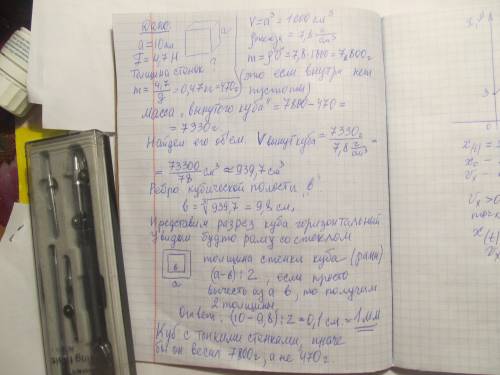 Дано:
a = 10 см
F = 4,7 Н
Толщина стенок
m = 4,7/g = 0,47 кг = 470 г
a
a
V = a³ = 1000 см³
ρ = 7,8 г/см³
m = ρV = 7,8·1000 = 7800 г
(это если внутри нет пустоты)
Масса "вынутого куба" = 7800 - 470 =
= 7330 г.
Найдем его объем. V вынут куба = 7330 г / 7,8 г/см³ =
= 73300/78 см³ ≈ 939,7 см³
Ребро кубической полости "в"
в = ∛939,7 = 9,8 см.
Представим разрез куба горизонтальный
Увидим будто раму со стеклом
в
a
толщина стенки куба (рамы)
(a-в):2, если просто
вычесть из a в, то получим
2 толщины
Ответ: (10-9,8):2 = 0,1 см. = 1 мм
Куб с тонкими стенками, иначе
бы он весил 7800 г, а не 470 г.
3
0
x(t)